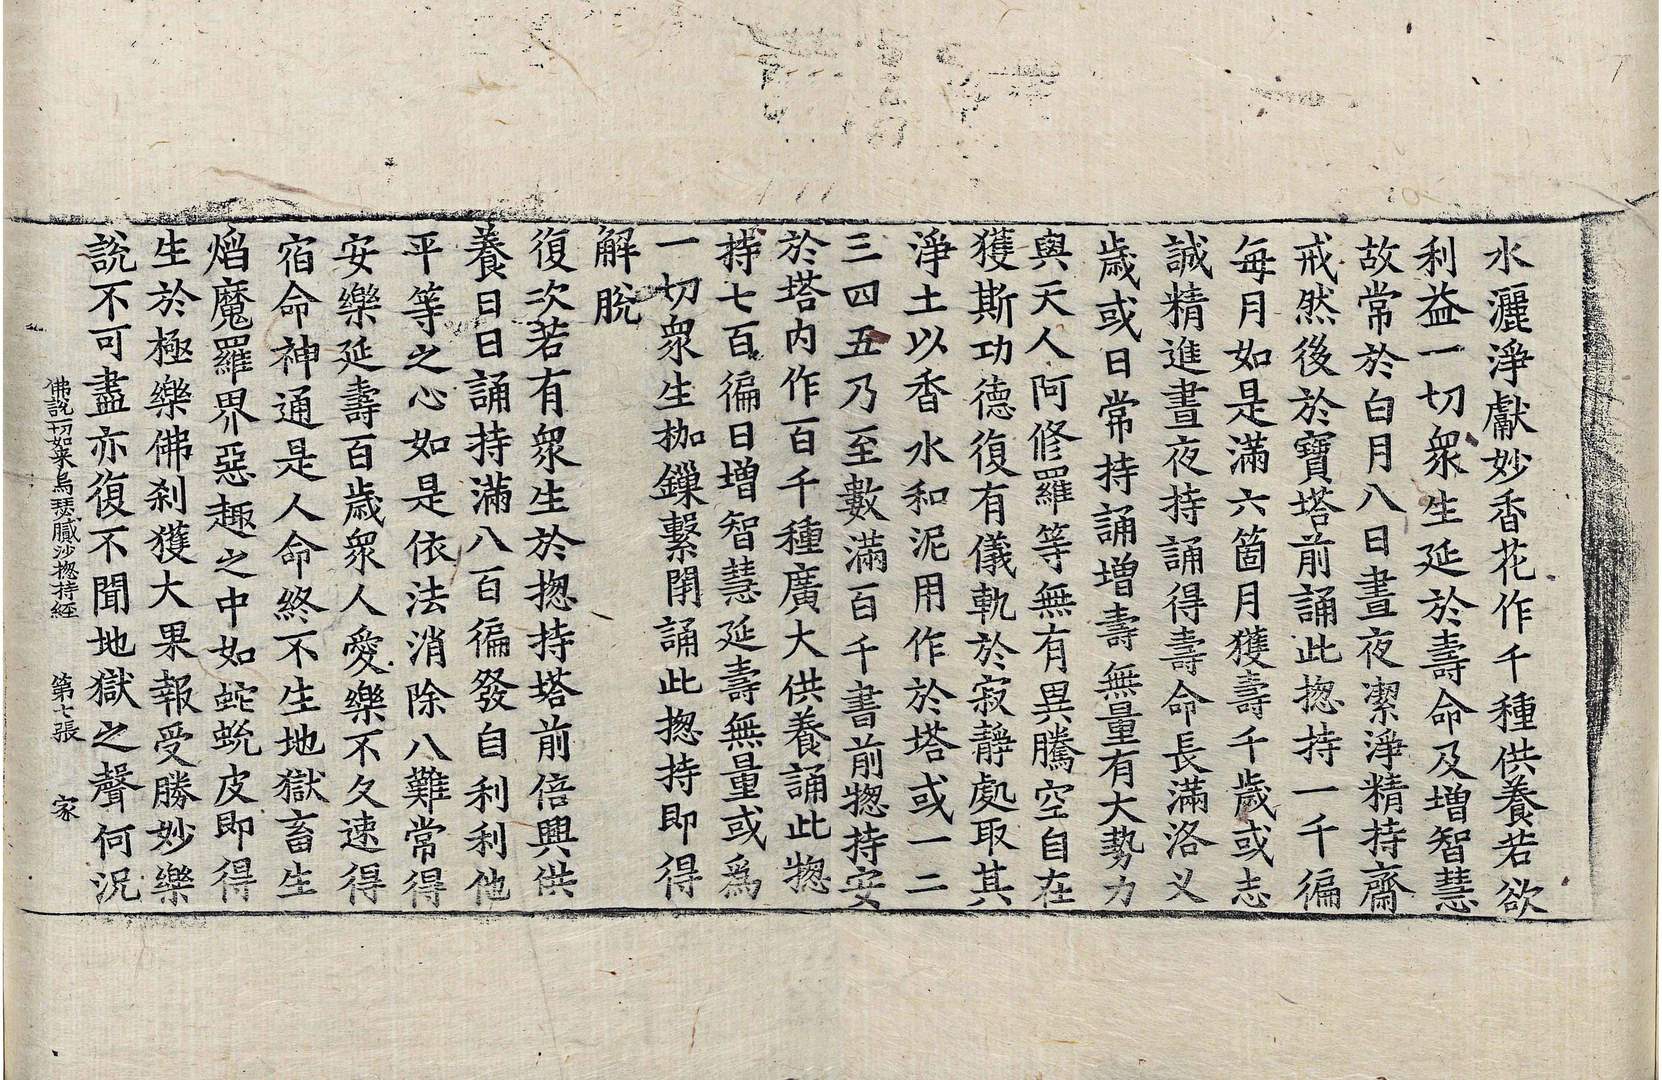 水灑淨獻妙香花作千種供養若欲
利益一切衆生延於壽命及增智慧
故常於白月八日晝夜潔淨精持齋
戒然後於寶塔前誦此揔持一千徧
每月如是滿六箇月獲壽千歲或志
誠精進晝夜持誦得壽命長滿洛义
歲或日常持誦增壽無量有大勢力
與天人阿修羅等無有異騰空自在
獲斯功德復有儀軌於寂靜處取其
淨土以香水和泥用作於塔或一二
三四五乃至數滿百千書前揔持安
於塔内作百千種廣大供養誦此揔
持七百徧日增智慧延壽無量或爲
一切衆生枷鏁繫閉誦此揔持即得
解脫
復次若有衆生於揔持塔前倍興供
養日日誦持滿八百徧發自利利他
平等之心如是依法消除八難常得
安樂延壽百歲衆人愛樂不久速得
宿命神通是人命終不生地獄畜生
焰魔羅界惡趣之中如蛇蛻皮即得
生於極樂佛刹獲大果報受勝妙樂
說不可盡亦復不聞地獄之聲何況
佛說一切如来烏瑟膩沙揔持經 第七張 家